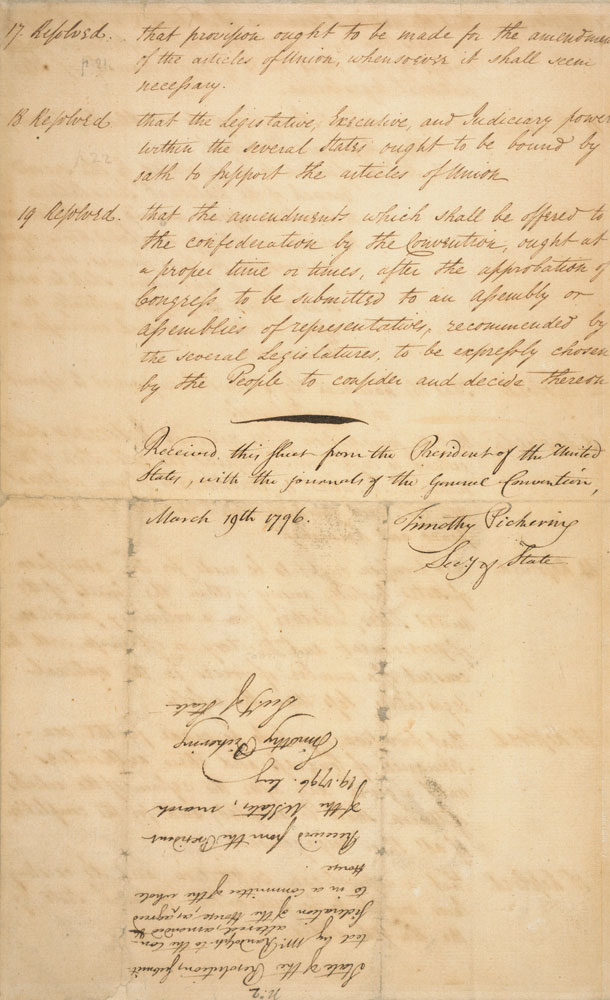 17. Resolved. that provision ought to be made for the amendmen
of the articles of Union, whensoever it shall seem
necessary.
18 Resolved that the Legislative, Executive, and Judiciary power
within the several States ought to be bound by
oath to support the articles of Union
19 Resolved. that the amendments which shall be offered to
the confederation by the Convention, ought at
a proper time or times, after the approbation of
Congress to be submitted to an assembly or
assemblies of representatives, recommended by
the several Legislatures, to be expressly chosen
by the People to consider and decide thereon
Received this sheet from the President of the United
States, with the journals of the general Convention,
March 19th 1796. Timothy Pickering
Secy of State
No. 2
State of the Resolutions submit
ted by Mr. Randolph to the con-
sideration of the House, as
altered, amended &
agreed
to in a Committee of the whole
House.
Received from the President
of the U States, March
19. 1796. by
Timothy Pickering
Secy of State